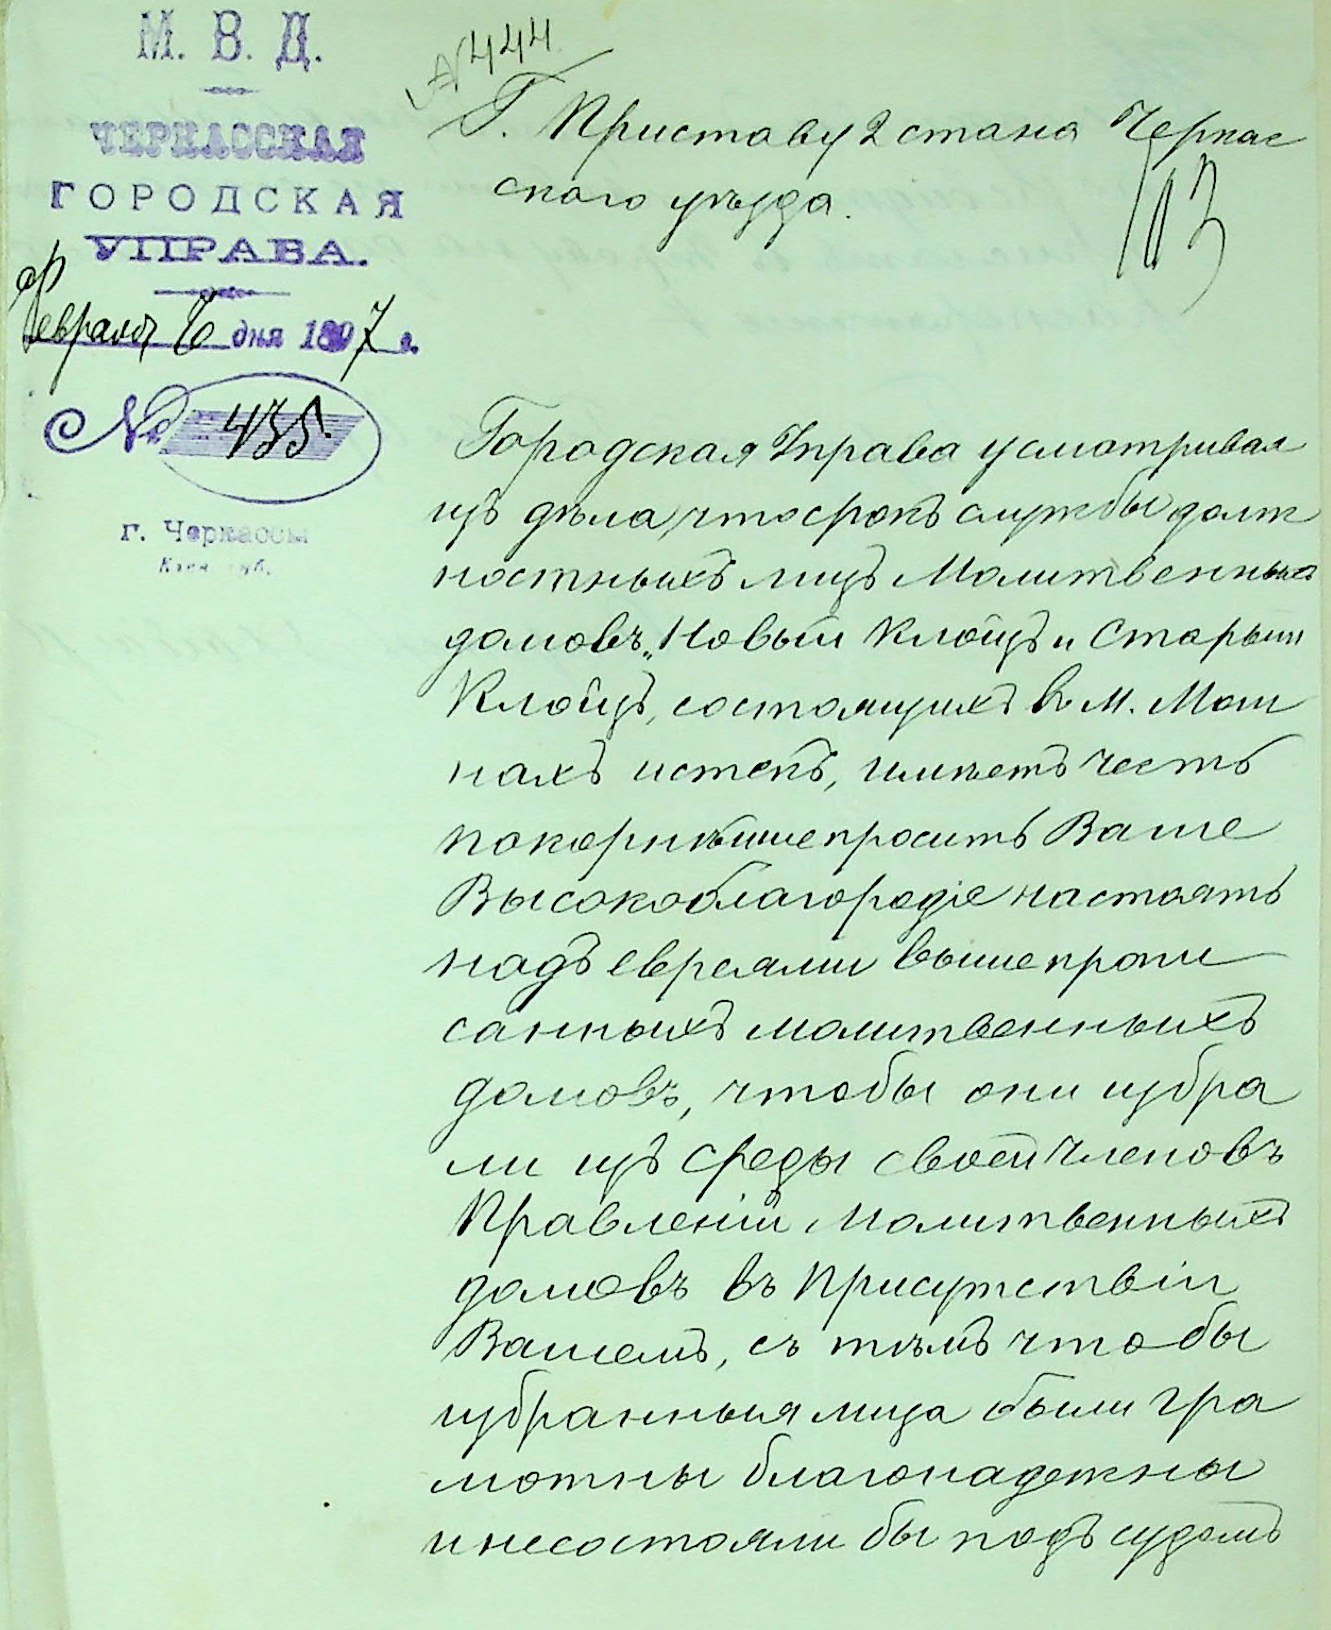 М. В. Д.
ЧЕРКАССКАЯ
ГОРОДСКАЯ
УПРАВА.
Февраля 6 дня 1897 г.
№ 435.
г. Черкассы
Киев. губ.
№444
Г. Приставу 2 стана Черкас
скаго уѣзда.
103
Городская Управа усматривая
изъ дѣла, что срокъ службы долж
ностныхъ лицъ Молитвенныхъ
домовъ „Новый Клойзъ и Старый
Клойзъ, состоящихъ въ М. Мош
нахъ истекъ, имѣетъ честь
покорнѣйше просить Ваше
Высокоблагородіе настоять
надъ евреями вышепропи
санныхъ молитвенныхъ
домовъ, чтобы они избра
ли изъ среды своей членовъ
Правленій Молитвенныхъ
домовъ въ присутствіи
Вашемъ, съ тѣмъ чтобы
избранныя лица были гра
мотны благонадежны
и несостояли бы подъ судомъ